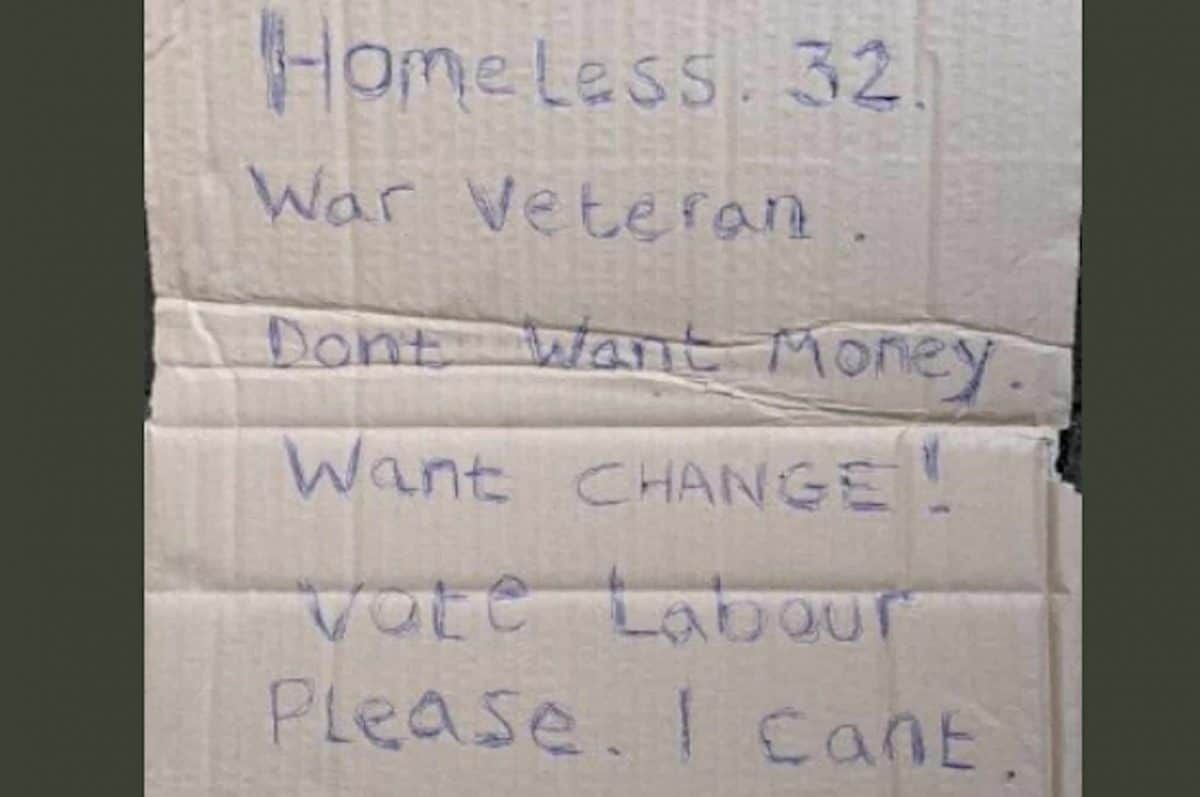 Homeless. 32.
War Veteran.
Dont Want Money.
Want CHANGE!
Vote Labour
Please. I cant.